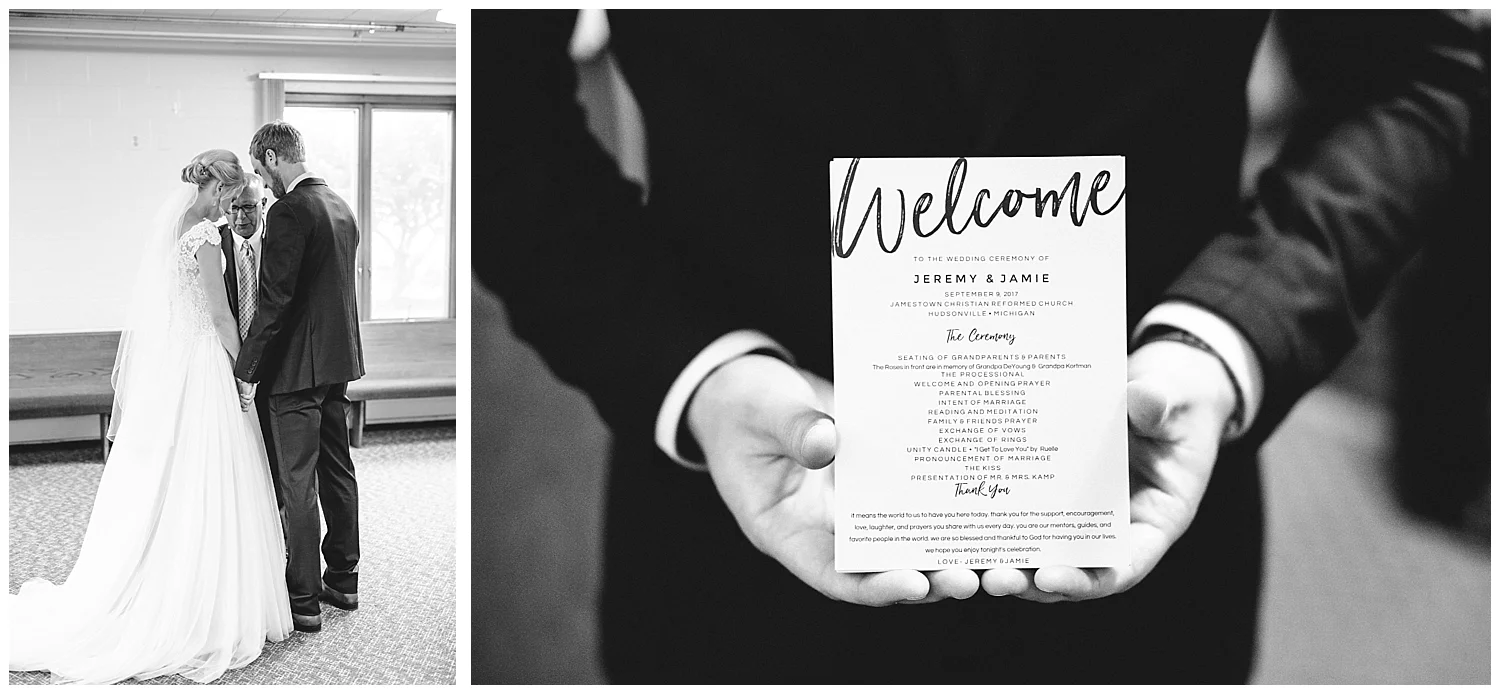 Welcome
TO THE WEDDING CEREMONY OF
JEREMY & JAMIE
SEPTEMBER 9, 2017
JAMESTOWN CHRISTIAN REFORMED CHURCH
HUDSONVILLE • MICHIGAN
The Ceremony
SEATING OF GRANDPARENTS & PARENTS
The Roses in front are in memory of Grandpa DeYoung & Grandpa Kortman
THE PROCESSIONAL
WELCOME AND OPENING PRAYER
PARENTAL BLESSING
INTENT OF MARRIAGE
READING AND MEDITATION
FAMILY & FRIENDS PRAYER
EXCHANGE OF VOWS
EXCHANGE OF RINGS
UNITY CANDLE • "I Get To Love You" by Ruelle
PRONOUNCEMENT OF MARRIAGE
THE KISS
PRESENTATION OF MR. & MRS. KAMP
Thank You
it means the world to us to have you here today. thank you for the support, encouragement,
love, laughter, and prayers you share with us every day. you are our mentors, guides, and
favorite people in the world. we are so blessed and thankful to God for having you in our lives.
we hope you enjoy tonight's celebration.
LOVE- JEREMY & JAMIE